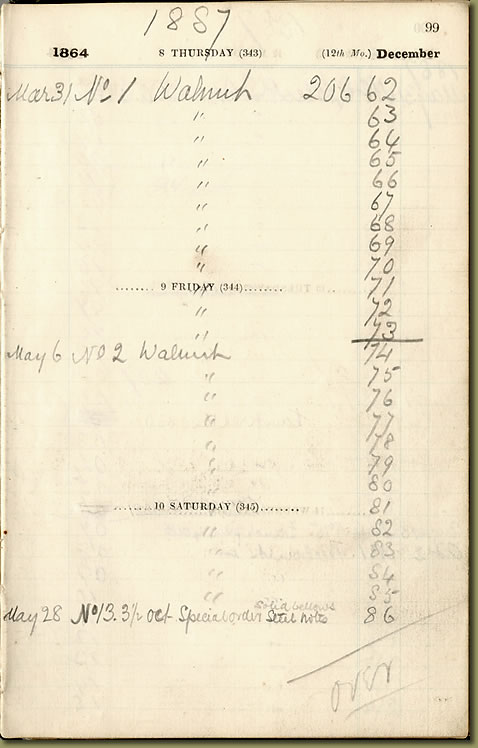 99
1887
1864 8 THURSDAY (343) (12th Mo.) December
Mar 31 No 1 Walnut 206 62
" 63
" 64
" 65
" 66
" 67
" 68
" 69
" 70
9 FRIDAY (344)
" 71
" 72
" 73
May 6 No 2 Walnut 74
" 75
" 76
" 77
" 78
" 79
" 80
10 SATURDAY (345)
" 81
" 82
" 83
" 84
" 85
solid bellows
May 28 No 13. 3½ Oct Special order Steel notes 86
over